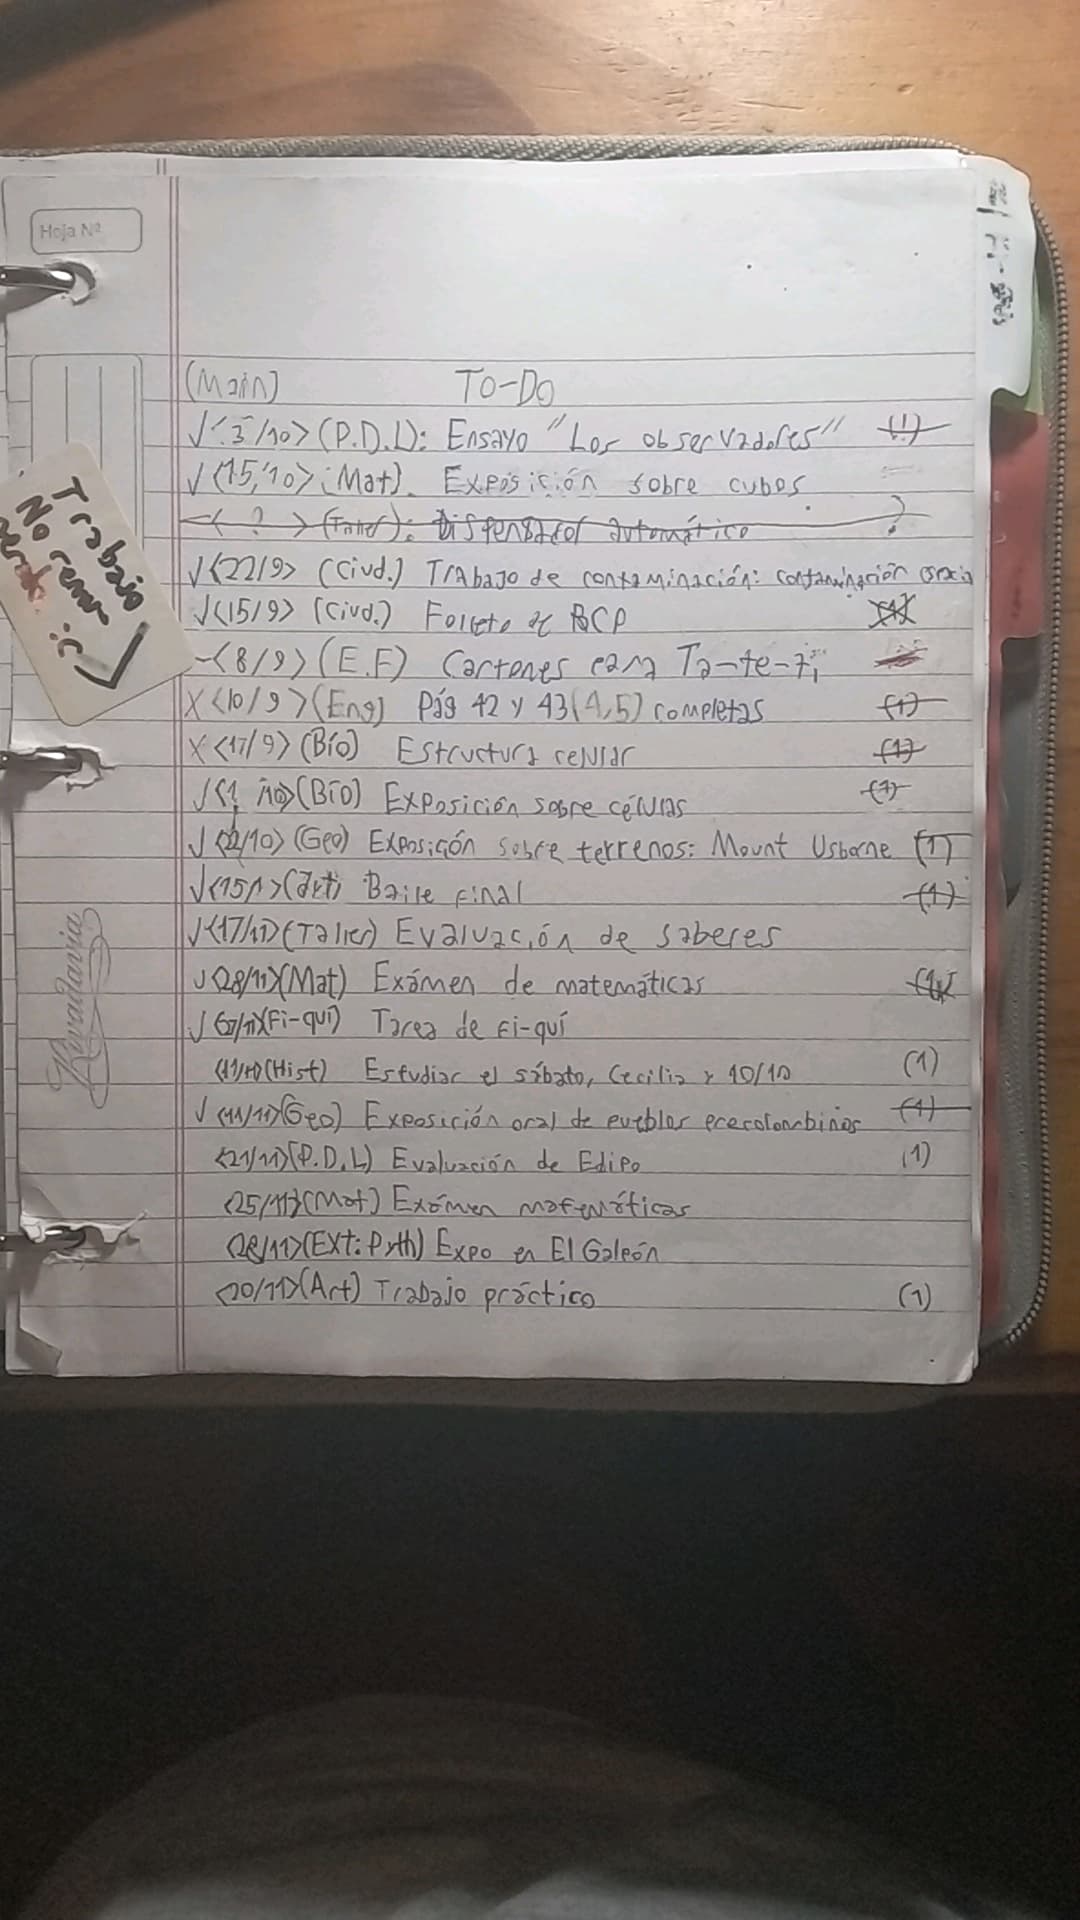 Hoja Nº
(Main) TO-DO
√<3/10>(P.D.L): Ensayo "Los observadores" (1)
√<15/10>(Mat). Exposición sobre cubos
-< ? >(Taller): Dispensador automático ?
√<22/9> (Ciud.) Trabajo de contaminación: contaminación
√<15/9> (Ciud.) Folleto de RCP
-<8/9>(E.F) Cartones para Ta-te-ti
X<10/9>(Eng) Pág 42 y 43(4,5) completas (1)
X<17/9>(Bío) Estructura celular (1)
√<1/10>(Bío) Exposición sobre células (1)
√<22/10>(Geo) Exposición sobre terrenos: Mount Usborne (1)
√ (Art) Baile final (1)
√<17/11>(Taller) Evaluación de saberes
√<28/11>(Mat) Exámen de matemáticas
√ (Fi-quí) Tarea de Fi-quí
(Hist) Estudiar el sábato, Cecilia y 10/10 (1)
√<11/11>(Geo) Exposición oral de pueblos precolombinos (1)
<21/11>(P.D.L) Evaluación de Edipo (1)
<25/11>(Mat) Exámen matemáticas
<28/11>(Ext: Pyth) Expo en El Galeón
<20/11>(Art) Trabajo práctico (1)
Rivadavia
Trabajo
No